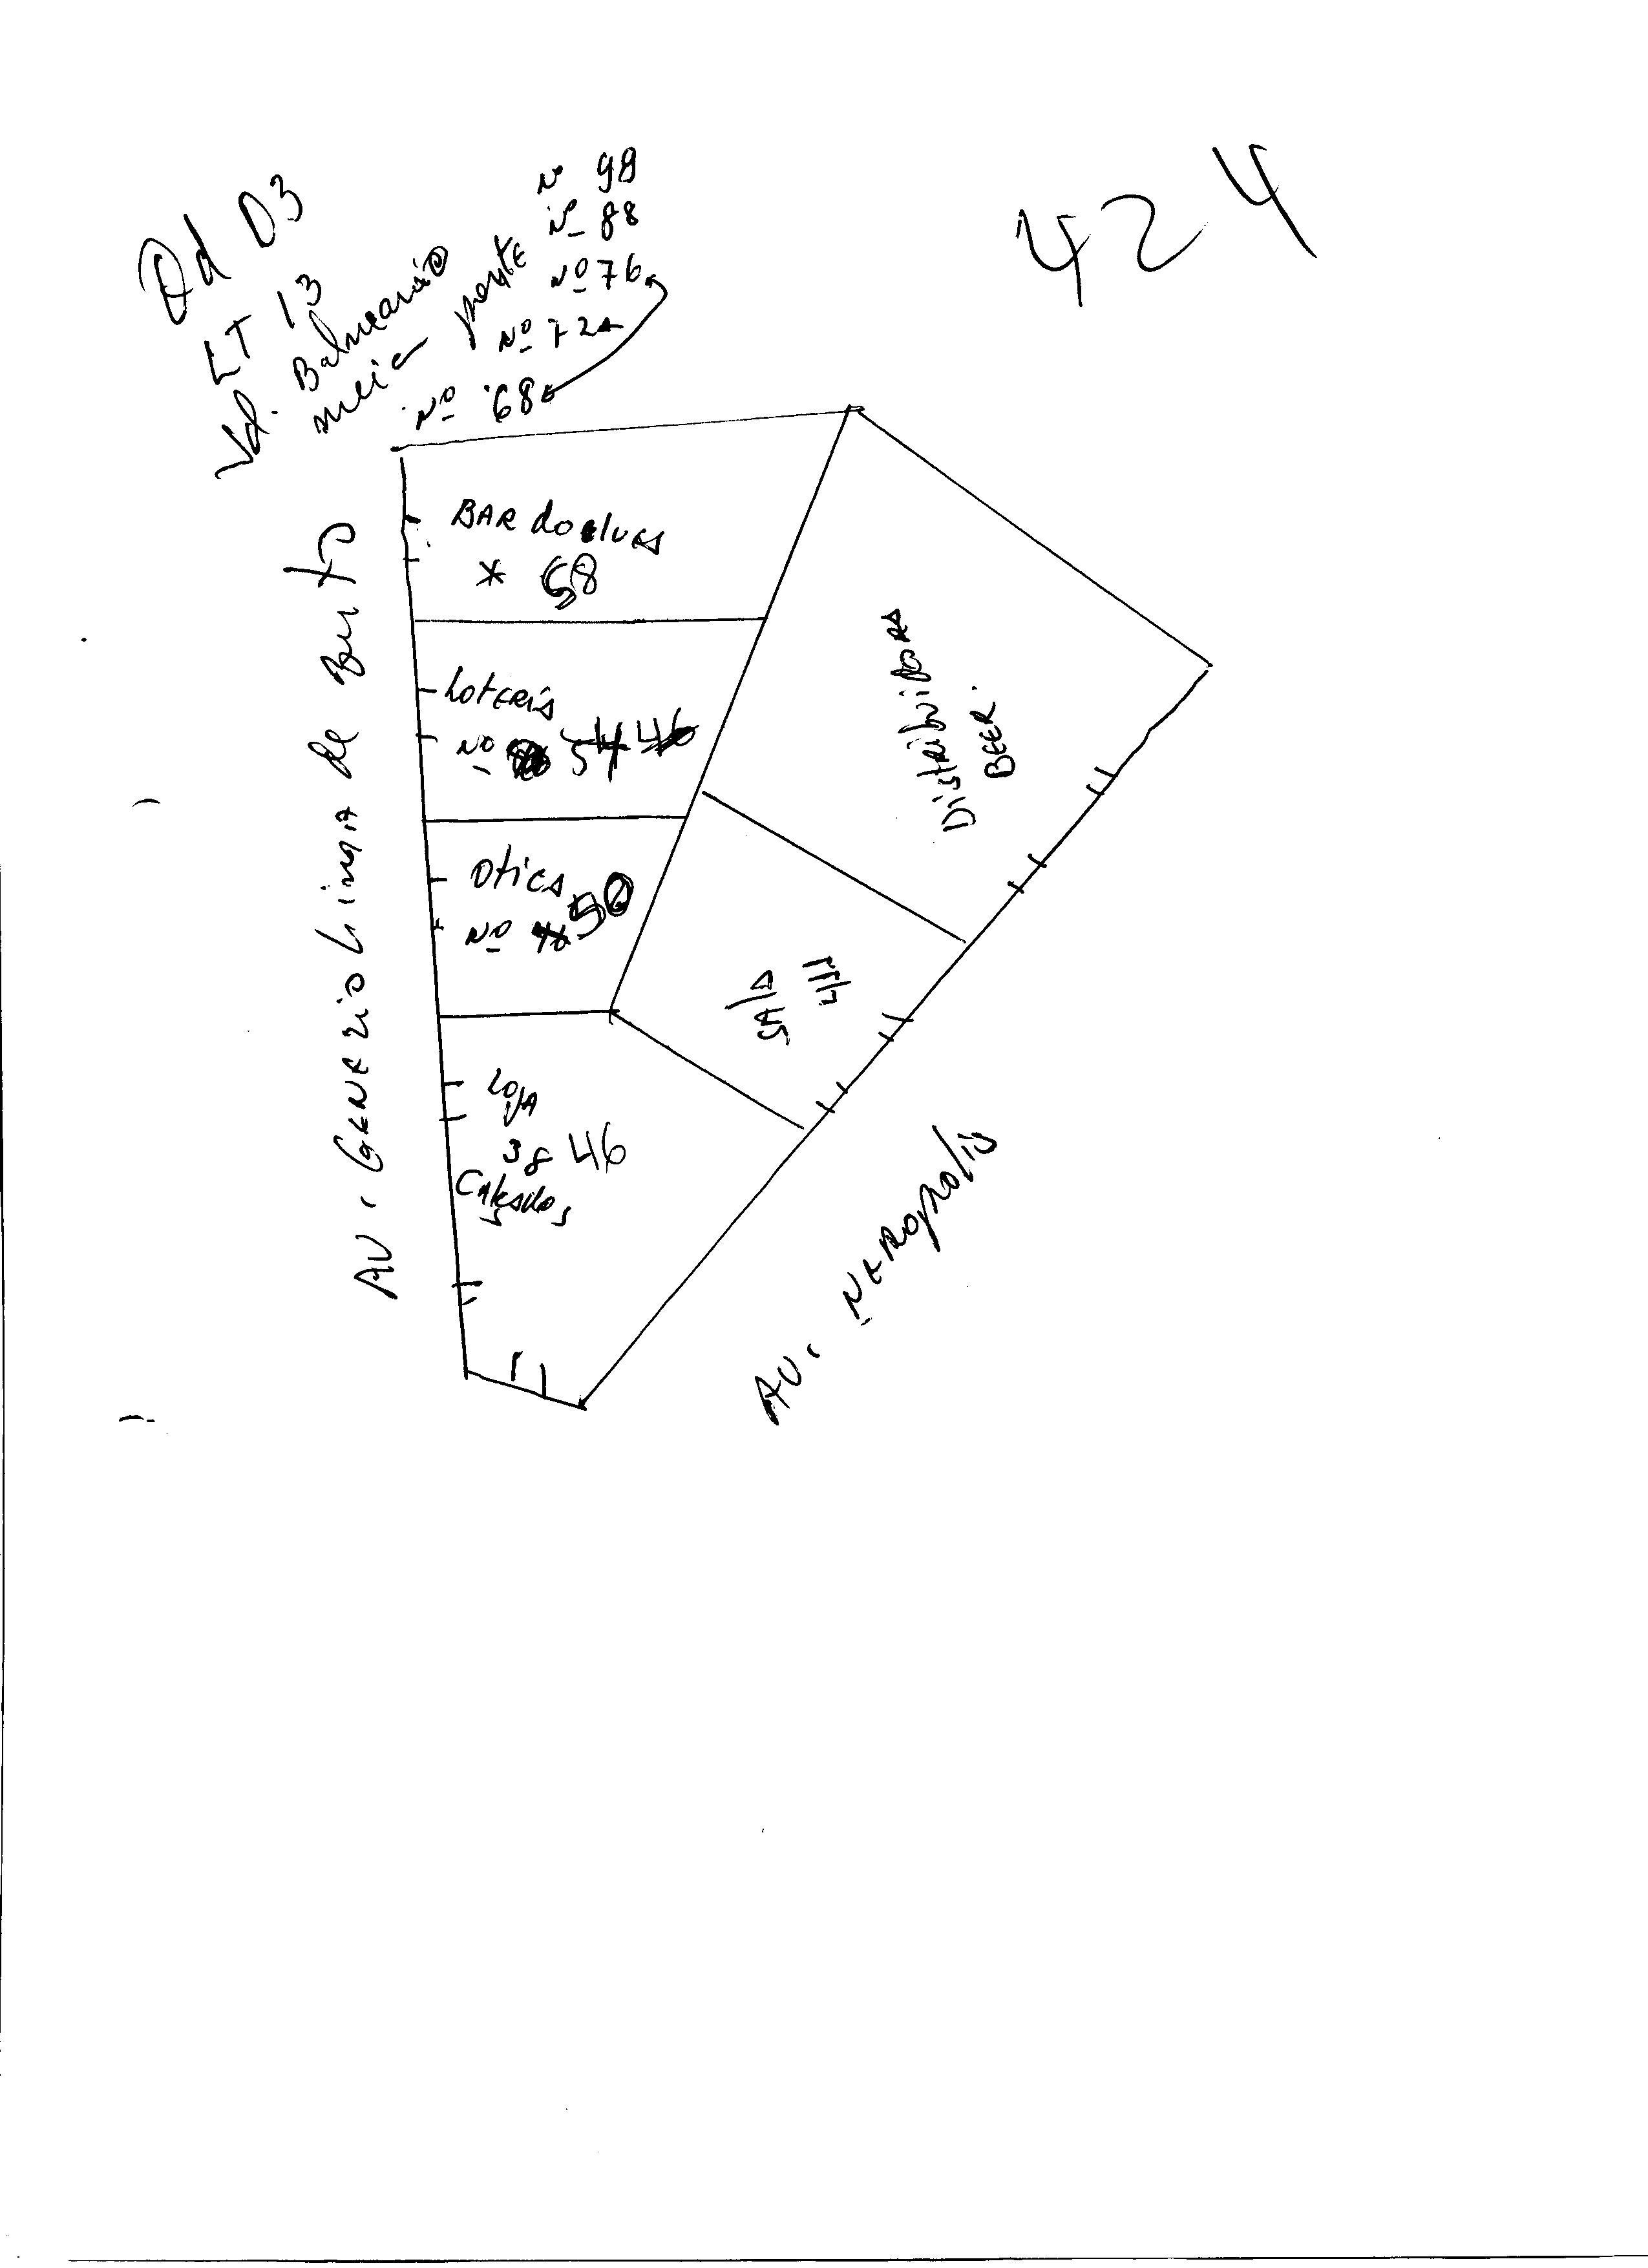 Qd D3
LT 13
Vd. Balneario
meia ponte
Nº 98
Nº 88
Nº 76
Nº 72
Nº 68
424
BAR do
* 58
Loteria
Nº 54 46
Otica
Nº 46 50
Loja
38 46
Calsados
Distribuidora
BEER.
SALA
AV. GENEZIO Lima de Brito
AV. NEROPOLIS